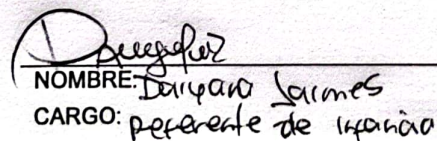 NOMBRE: Daryana Jaimes
CARGO: referente de infancia